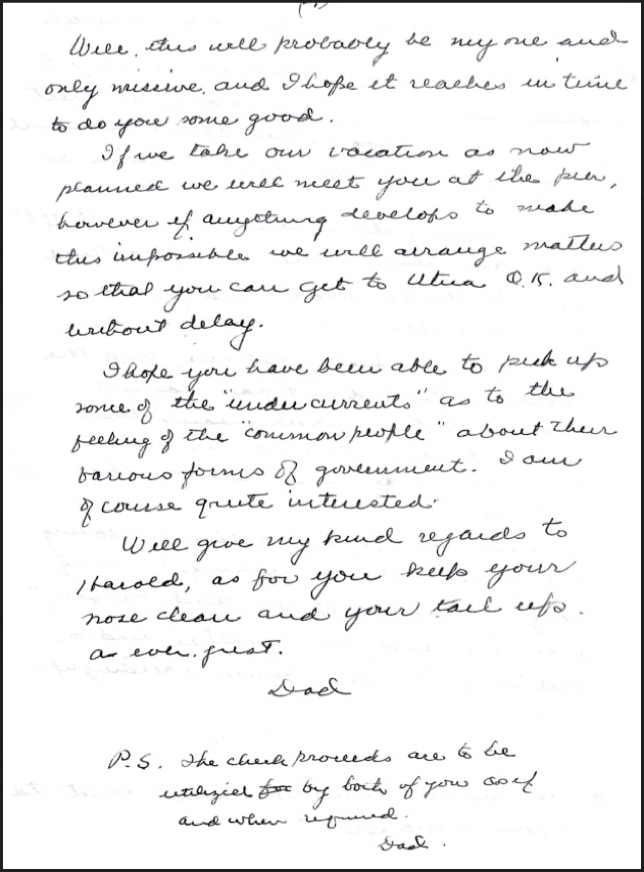 Well, this will probably be my one and
only missive, and I hope it reaches in time
to do you some good.
If we take our vacation as now
planned we will meet you at the pier,
however if anything develops to make
this impossible we will arrange matters
so that you can get to Utica O.K. and
without delay.
I hope you have been able to pick up
some of the "under currents" as to the
feeling of the "common people" about their
various forms of government. I am
of course quite interested.
Well give my kind regards to
Harold, as for you keep your
nose clean and your tail up.
as ever.
Dad
P.S. The check proceeds are to be
utilized by both of you as if
and when required.
Dad.